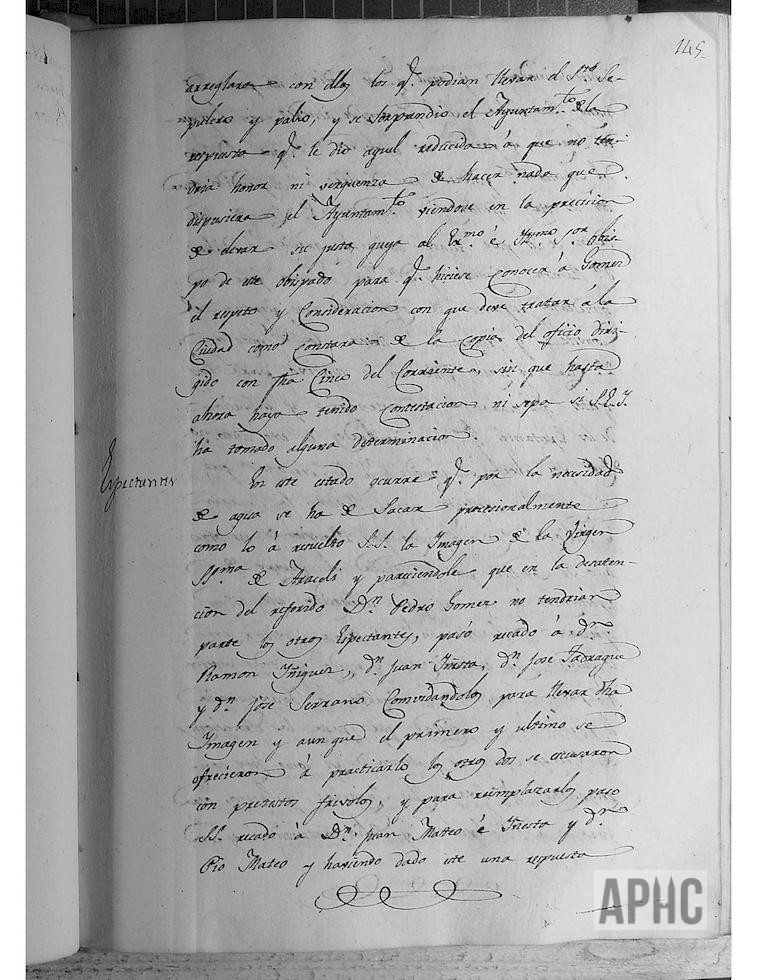 145.
arreglara con ellos los q.e podian llevar el S.to Se-
pulcro y palio, y se sorprendio el Ayuntam.to de la
respuesta q.e le dio aquel reducida à que no ten-
dria honor ni verguenza de hacer nada que
dispusiera el Ayuntam.to viendose en la precision
de elevar su justa queja al Ex.mo é Yll.mo S.or obis-
po de este obispado para q.e hiciese conocer à Gomez
el respeto y Consideracion con que deve tratar á la
Ciudad como constara de la Copia del oficio diri-
gido con fha Cinco del Corriente, sin que hasta
ahora haya tenido Contestacion ni sepa si S.E.Y.
ha tomado alguna determinacion.
Espectantes
En este estado ocurre q.e por la necesidad
de agua se ha de Sacar procesionalmente
como lo à resuelto S.S. la Ymagen de la Virgen
SS.ma de Araceli y pareciendole que en la desaten-
cion del referido D.n Pedro Gomez no tendrian
parte los otros Espectantes, pasó recado à d.n
Ramon Yñiguez, d.n Juan Yñesta, d.n Jose Jadraque
y d.n Jose Serrano Combidandolos para llevar dha
Ymagen y aunque el primero y ultimo se
ofrecieron à practicarlo los otros dos se escusaron
con pretestos frivolos, y para reemplazarlos paso
SS. recado à D.n Juan Mateo é Yñesta y d.n
Pio Mateo y haviendo dado este una repuesta
APHC